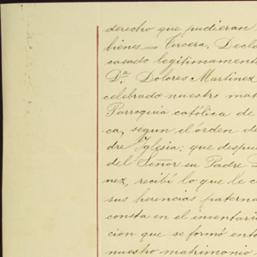 derecho que pudieran
bienes.— Tercera, Decla
casado legitimament
Dª Dolores Martinez
celebrado nuestro mat
Parroquia católica de
ca, segun el órden de
dre Iglesia; que despu
del Señor su Padre D
nez, recibí lo que le c
sus herencias paterna
consta en el inventari
cion que se formó ento
nuestro matrimonio